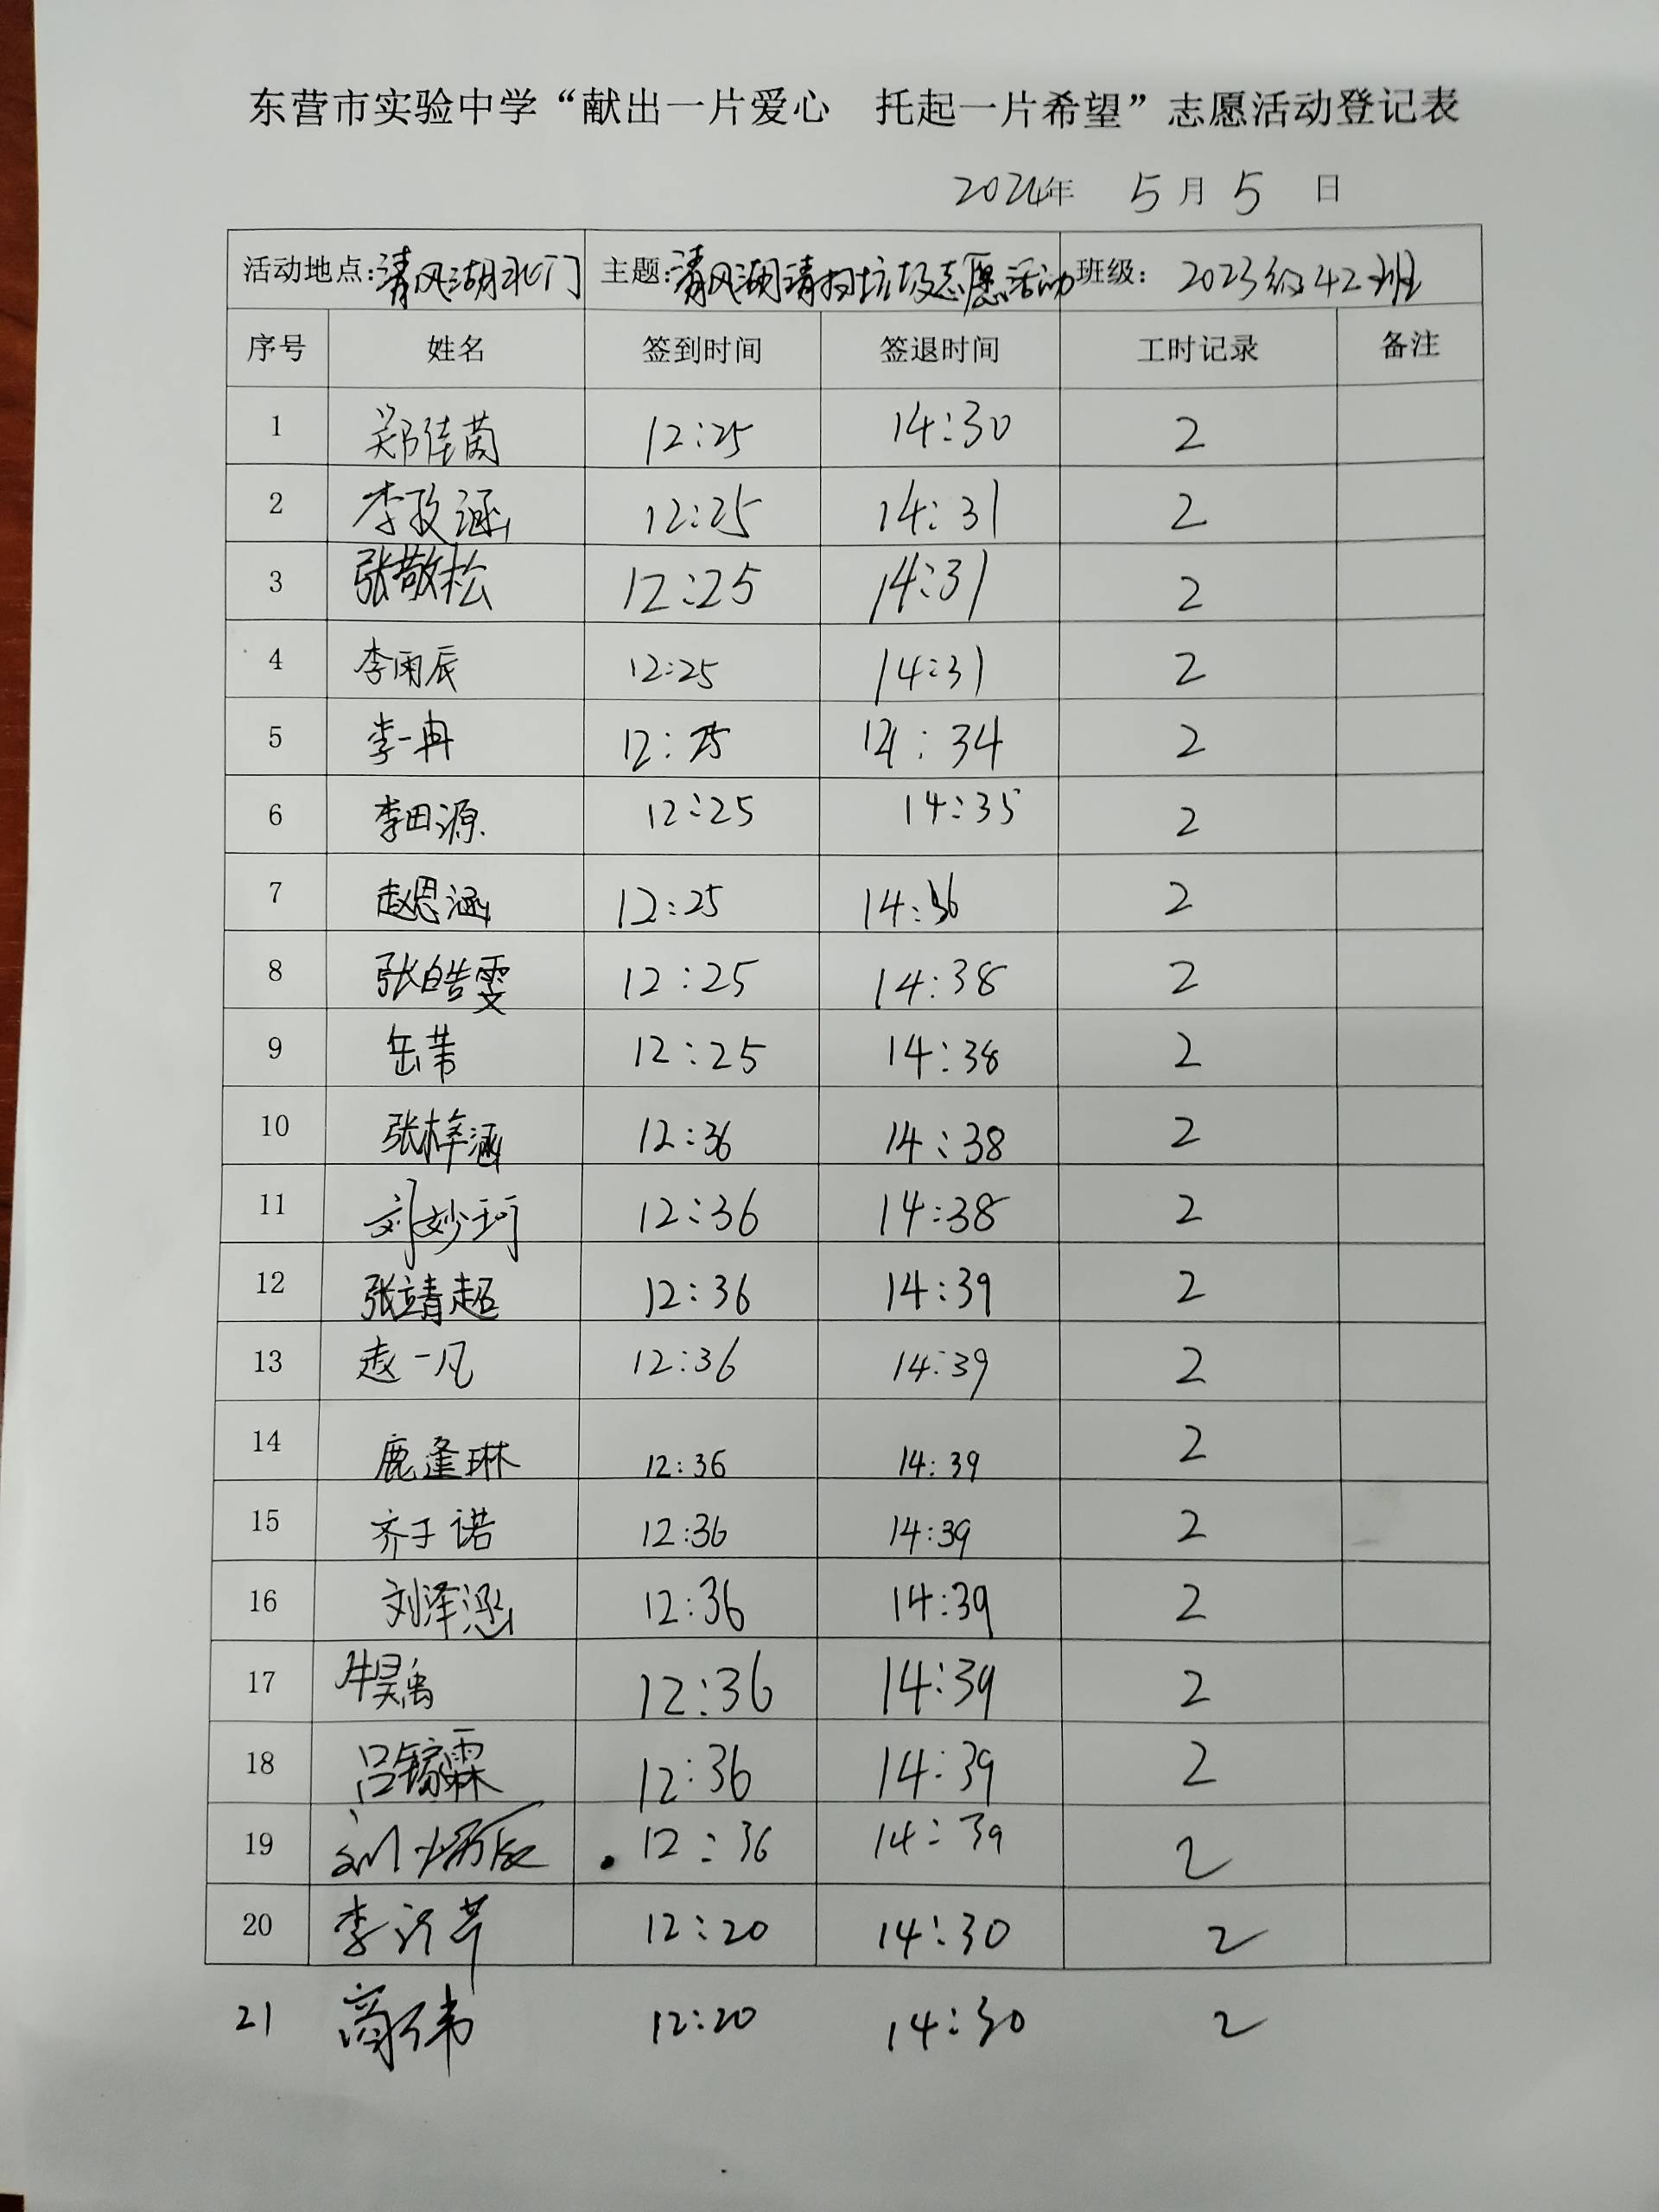 东营市实验中学“献出一片爱心 托起一片希望”志愿活动登记表
2024年 5月5日
活动地点:清风湖北门 主题:清风湖清扫垃圾志愿活动 班级: 2023级42班
序号 姓名 签到时间 签退时间 工时记录 备注
1 郑佳茵 12:25 14:30 2
2 李孜涵 12:25 14:31 2
3 张敬松 12:25 14:31 2
4 李雨辰 12:25 14:31 2
5 李一冉 12:25 14:34 2
6 李田源 12:25 14:35 2
7 赵恩涵 12:25 14:36 2
8 张皓雯 12:25 14:38 2
9 岳芾 12:25 14:38 2
10 张梓涵 12:36 14:38 2
11 刘妙珂 12:36 14:38 2
12 张靖超 12:36 14:39 2
13 赵一凡 12:36 14:39 2
14 鹿逢琳 12:36 14:39 2
15 齐子诺 12:36 14:39 2
16 刘泽涵 12:36 14:39 2
17 牛昊禹 12:36 14:39 2
18 吕镓霖 12:36 14:39 2
19 12:36 14:39 2
20 李 12:20 14:30 2
21 商伟 12:20 14:30 2